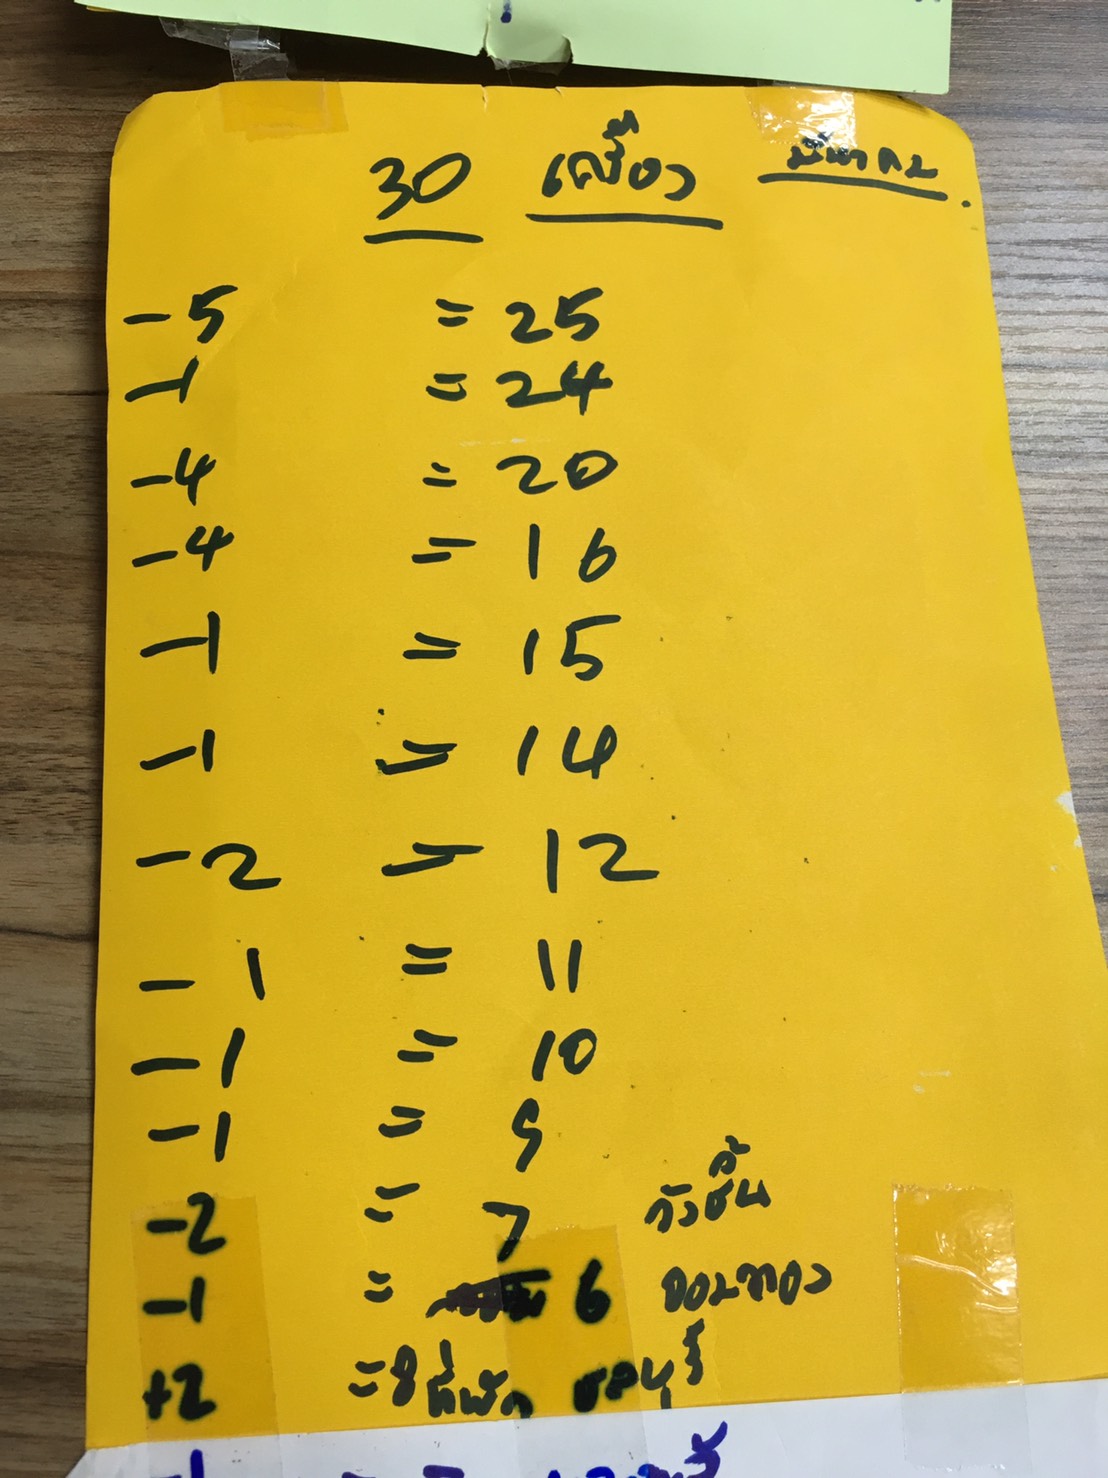 30 เครื่อง มีนาคม
-5 = 25
-1 = 24
-4 = 20
-4 = 16
-1 = 15
-1 = 14
-2 = 12
-1 = 11
-1 = 10
-1 = 9
-2 = 7
-1 = 6 จอมทอง
+2 = 8 ที่พัก ชลบุรี
-1